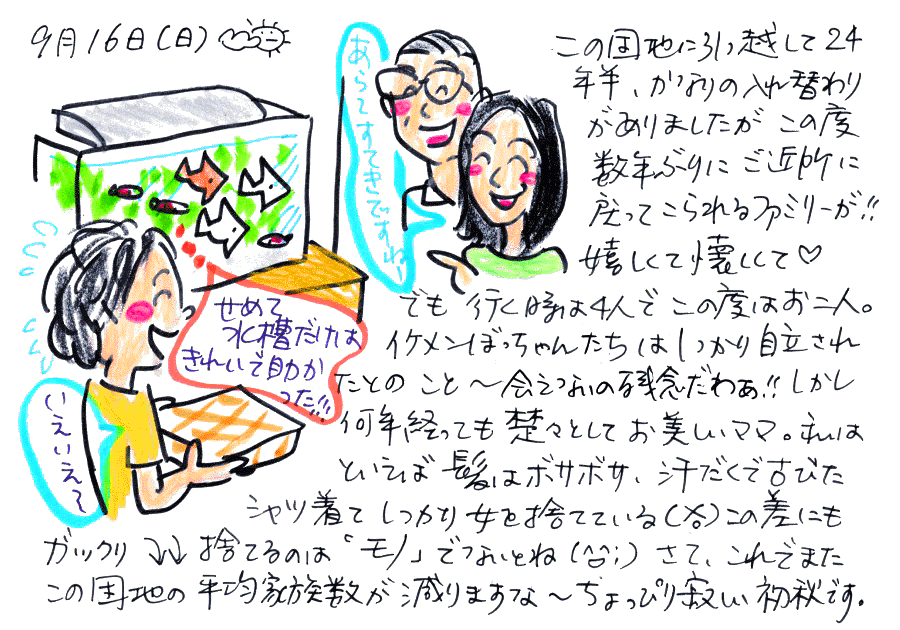 9月16日(日)
あらぁすてきですね、
せめて
水槽だけは
きれいで助か
った!!!
いえいえ〜
この団地に引っ越して24
年半、かなりの入れ替わり
がありましたが この度
数年ぶりに ご近所に
戻ってこられるファミリーが!!
嬉しくて懐しくて♡
でも 行く時は4人で この度はお二人。
イケメンぼっちゃんたち はしっかり自立され
たとの こと〜会えないの残念だわぁ!! しかし
何年経っても 楚々として お美しいママ。私は
といえば 髪はボサボサ、汗だくで古びた
シャツ着て しっかり 女を捨てている(>0<)この差にも
ガックリ ↓↓ 捨てるのは「モノ」でないとね(^^;) さて、これでまた
この団地の 平均家族数が 減りますな〜ちょっぴり寂しい 初秋です。